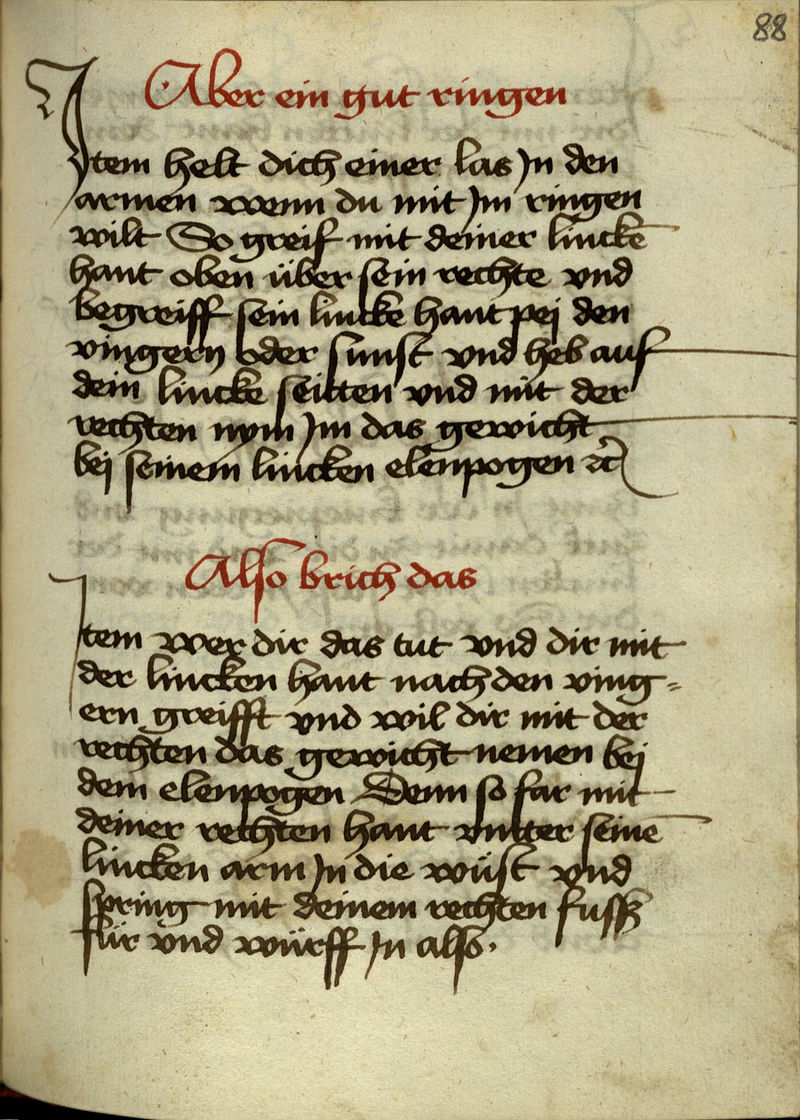 88
Aber ein gut ringen
Item helt dich einer las Jn den
armen wenn du mit Jm ringen
wilt So greif mit deiner linckē
hant oben über sein rechte vnd
begreiff sein lincke hant pej den
vingern oder sunst vnd heb auf
dein lincke seitten vnd mit der
rechten nym Jm das gewicht
bej seinem lincken elenpogen ꝛc
Also brich das
Jtem wer dir das tut vnd dir mit
der lincken hant nach den ving=
ern greifft vnd wil dir mit der
rechten das gewicht nemen bej
dem elenpogen Denn so far mit
deiner rechten hant vnter seinē
lincken arm Jn die wüst vnd
spring mit deinem rechten fusß
für vnd würff Jn also.